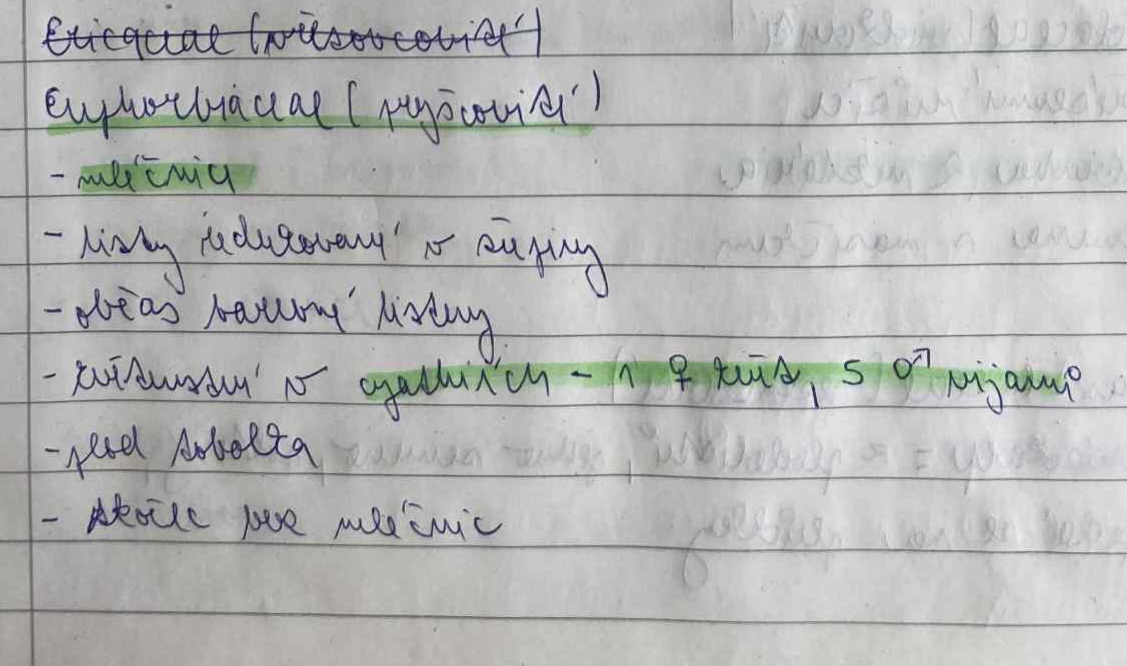 Ericaceae (vřesovcovité)
Euphorbiaceae (pryšcovité)
- mléčnice
- listy redukovaný v šupiny
- občas barevné listeny
- květenství v cyathiích - 1 ♀ květ, 5 ♂ vijanů
- plod tobolka
- skočec bez mléčnic